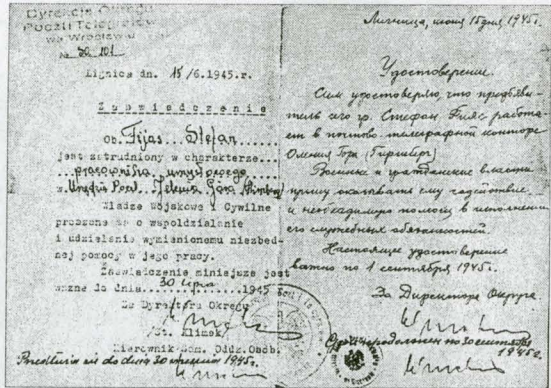 Dyrekcja Okręgu
Poczt i Telegrafów
we Wrocławiu
Lignica dn. 15/6.1945.r.
Zaświadczenie
ob. Fijas Stefan
jest zatrudniony w charakterze
pracownika umysłowego
w Urzędzie Poczt. Jelenia Góra
Władze Wojskowe i Cywilne
proszone są o współdziałanie
i udzielanie wymienionemu niezbęd-
nej pomocy w jego pracy.
Zaświadczenie niniejsze jest
ważne do dnia 30 lipca 1945
Za Dyrektora Okręgu
/St. Klimek/
Kierownik Sam. Oddz. Osob.
Przedłuża się do dnia 30 września 1945 r.
Лигница, июня 15 дня, 1945 г.
Удостоверение.
Сим удостоверяю, что предъяви-
тель сего гр. Стефан Фияс работа-
ет в почтово-телеграфной конторе
Военные и гражданские власти
прошу оказывать ему содействие
и необходимую помощь в исполнении
его служебных обязанностей
Настоящее удостоверение
важно по 1 сентября 1945 г.
За Директора Округа
продолжен по 30 сентября
1945 г.